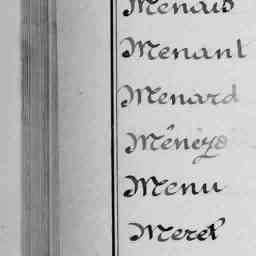 Menais
Menant
Menard
Ménéys
Menu
Meret